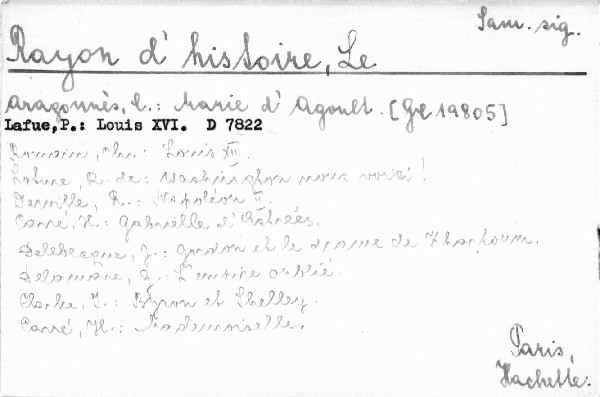 Sam. sig.
Rayon d'histoire, Le
Aragonnès, C.: Marie d'Agoult. [Ge 19805]
Lafue,P.: Louis XVI. D 7822
Romain, Ch.: Louis XIII.
R. de: Washington nous voici!
Derville, R.: Napoléon II.
Carré, H.: Gabrielle d'Estrées.
Delebecque, J.: Gordon et le drame de Khartoum.
Delamare, G.: L'empire oublié.
Clarke, I.: Byron et Shelley.
Carré, H.: Mademoiselle.
Paris,
Hachette.